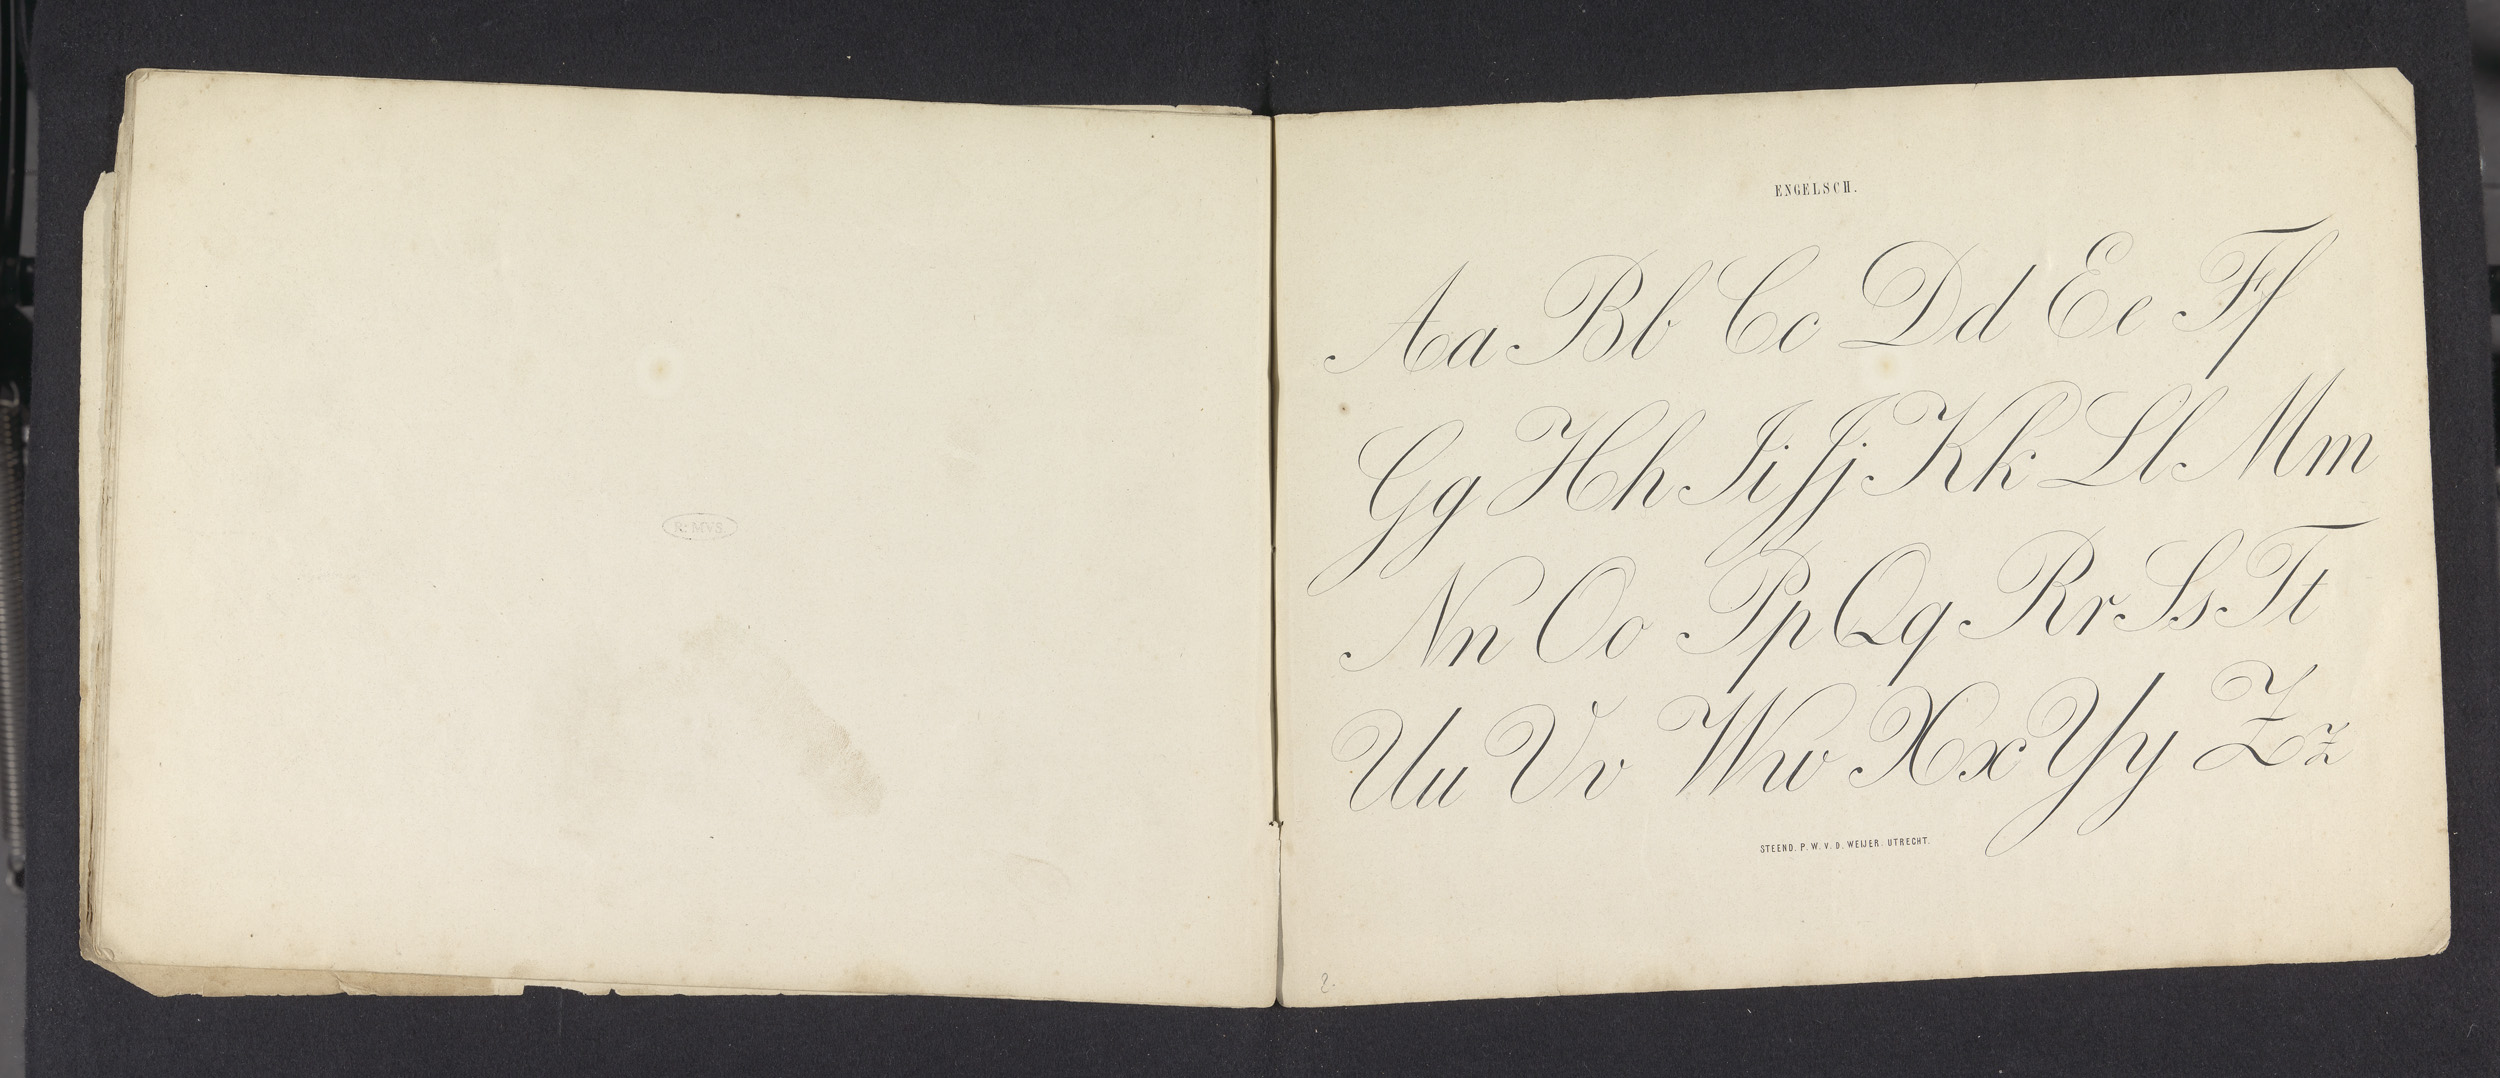 R: MVS.
ENGELSCH.
Aa Bb Cc Dd Ee Ff
Gg Hh Ii Jj Kk Ll Mm
Nn Oo Pp Qq Rr Ss Tt
Uu Vv Ww Xx Yy Zz
STEEND. P. W. V. D. WEIJER. UTRECHT.
2.